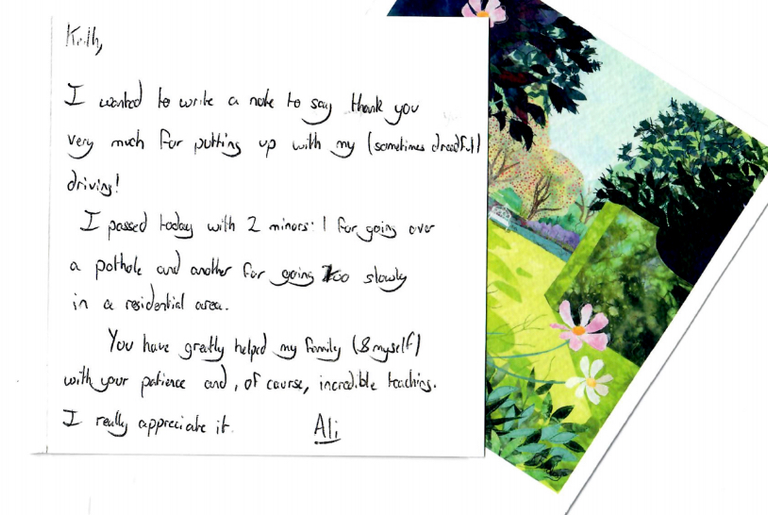 Keith,
I wanted to write a note to say thank you
very much for putting up with my (sometimes dreadful)
driving!
I passed today with 2 minors: 1 for going over
a pothole and another for going too slowly
in a residential area.
You have greatly helped my family (& myself)
with your patience and, of course, incredible teaching.
I really appreciate it.
Ali